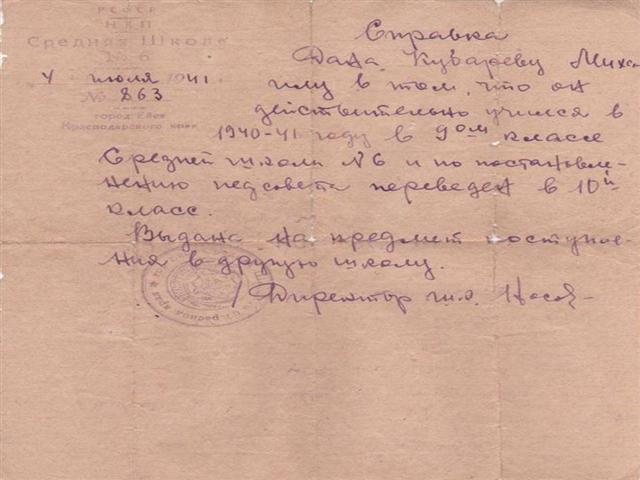 РСФСР
НКП
Средняя Школа
№ 6
4 июля 1941
№ 863
город Ейск
Краснодарского края
Справка
Дана Кувареву Миха-
илу в том, что он
действительно учился в
1940-41 году в 9ом классе
Средней школы №6 и по постановле-
нению педсовета переведен в 10й
класс.
Выдана на предмет поступле-
ния в другую школу.
Директор шк.